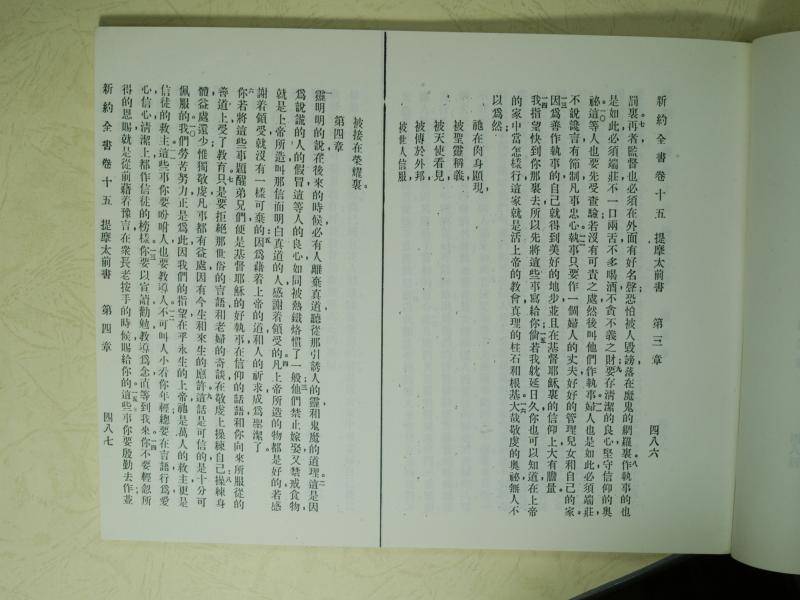 新約全書卷十五　提摩太前書　第三章　四八六
罰裏再者監督也必須在外面有好名聲恐怕被人毀謗落在魔鬼的網羅裏作執事的也
是如此必須端莊不一口兩舌不多喝酒不貪不義之財要存清潔的良心堅守信仰的奧
祕這等人也要先受查驗若沒有可責之處然後叫他們作執事婦人也是如此必須端莊
不說讒言有節制凡事忠心執事只要作一個婦人的丈夫好好的管理兒女和自己的家
因爲善作執事的自己就得到美好的地步並且在基督耶穌裏的信仰上大有膽量
我指望快到你那裏去所以先將這些事寫給你倘若我躭延日久你也可以知道在上帝
的家中當怎樣行這家就是活上帝的教會眞理的柱石和根基大哉敬虔的奧祕無人不
以爲然
祂在肉身顯現
被聖靈稱義
被天使看見
被傳於外邦
被世人信服
被接在榮耀裏。
第四章
靈明明的說在後來的時候必有人離棄眞道聽從那引誘人的靈和鬼魔的道理這是因
爲說謊的人的假冒這等人的良心如同被熱鐵烙慣了一般他們禁止嫁娶又禁戒食物
就是上帝所造叫那信而明白眞道的人感謝着領受的凡上帝所造的物都是好的若感
謝着領受就沒有一樣可棄的因爲藉着上帝的道和人的祈求成爲聖潔了
你若將這些事題醒弟兄們便是基督耶穌的好執事在信仰的話語和你向來所服從的
善道上受了教育只是要拒絕那世俗的言語和老婦的奇談在敬虔上操練自己操練身
體益處還少惟獨敬虔凡事都有益處因有今生和來生的應許這話是可信的是十分可
佩服的我們勞苦努力正是爲此因我們的指望在乎永生的上帝祂是萬人的救主更是
信徒的救主這些事你要吩咐人也要教導人不可叫人小看你年輕總要在言語行爲愛
心信心清潔上都作信徒的榜樣你要以宣讀勸勉教導爲念直等到我來你不要輕忽所
得的恩賜就是從前藉着豫言在衆長老按手的時候賜給你的這些事你要殷勤去作並
新約全書卷十五　提摩太前書　第四章　四八七